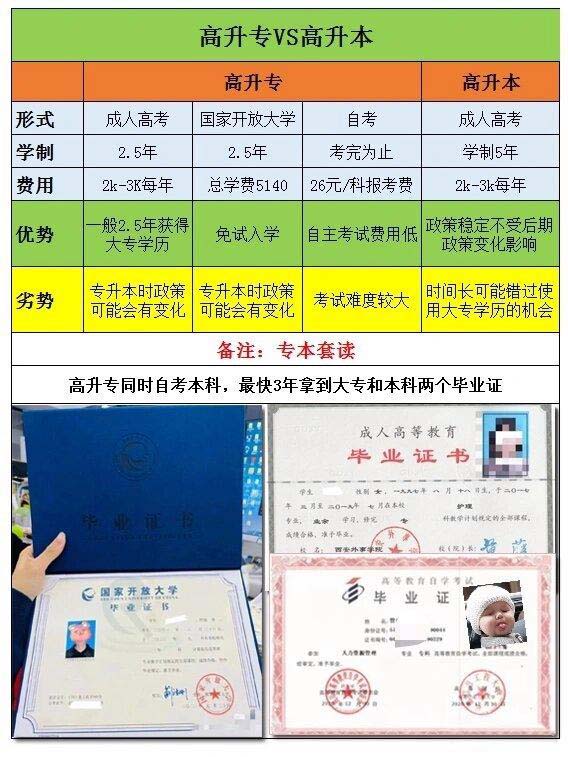 高升专VS高升本
高升专 高升本
形式 成人高考 国家开放大学 自考 成人高考
学制 2.5年 2.5年 考完为止 学制5年
费用 2k-3K每年 总学费5140 26元/科报考费 2k-3k每年
优势 一般2.5年获得大专学历 免试入学 自主考试费用低 政策稳定不受后期政策变化影响
劣势 专升本时政策可能会有变化 专升本时政策可能会有变化 考试难度较大 时间长可能错过使用大专学历的机会
备注：专本套读
高升专同时自考本科，最快3年拿到大专和本科两个毕业证
毕业证书
国家开放大学
毕业证书
成人高等教育
毕业证书
学生 性别 女，一九九七年 八 月 十八日生，于二〇一七
年 三 月至二〇一九年 七 月在本校 护理
专业，业余 学习，修完 专 科教学计划规定的全部课程，
成绩合格，准予毕业。
校 名：西安外事学院 校（院）长：
高等教育自学考试
毕业证
姓名
身份证号
参加 人力资源管理 专业 专科 高等教育自学考试，全部课程成绩合格，
准予毕业。